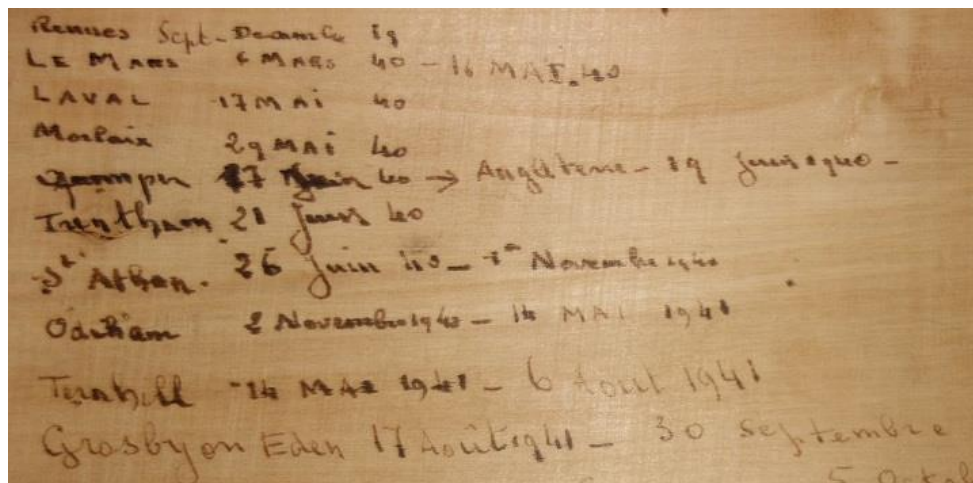 Rennes Sept-Decembre 39
LE MANS 6 MARS 40 - 16 MAI.40
LAVAL 17 MAI 40
Morlaix 29 MAI 40
Quimper 17 Juin 40 → Angleterre - 19 Juin 1940 -
Trentham 21 Juin 40
St Athan. 26 Juin 40 - 1er Novembre 1940
Odiham 2 Novembre 1940 - 14 MAI 1941
Ternhill 14 MAI 1941 - 6 Aout 1941
Grosby on Eden 17 Août 1941 - 30 Septembre
5